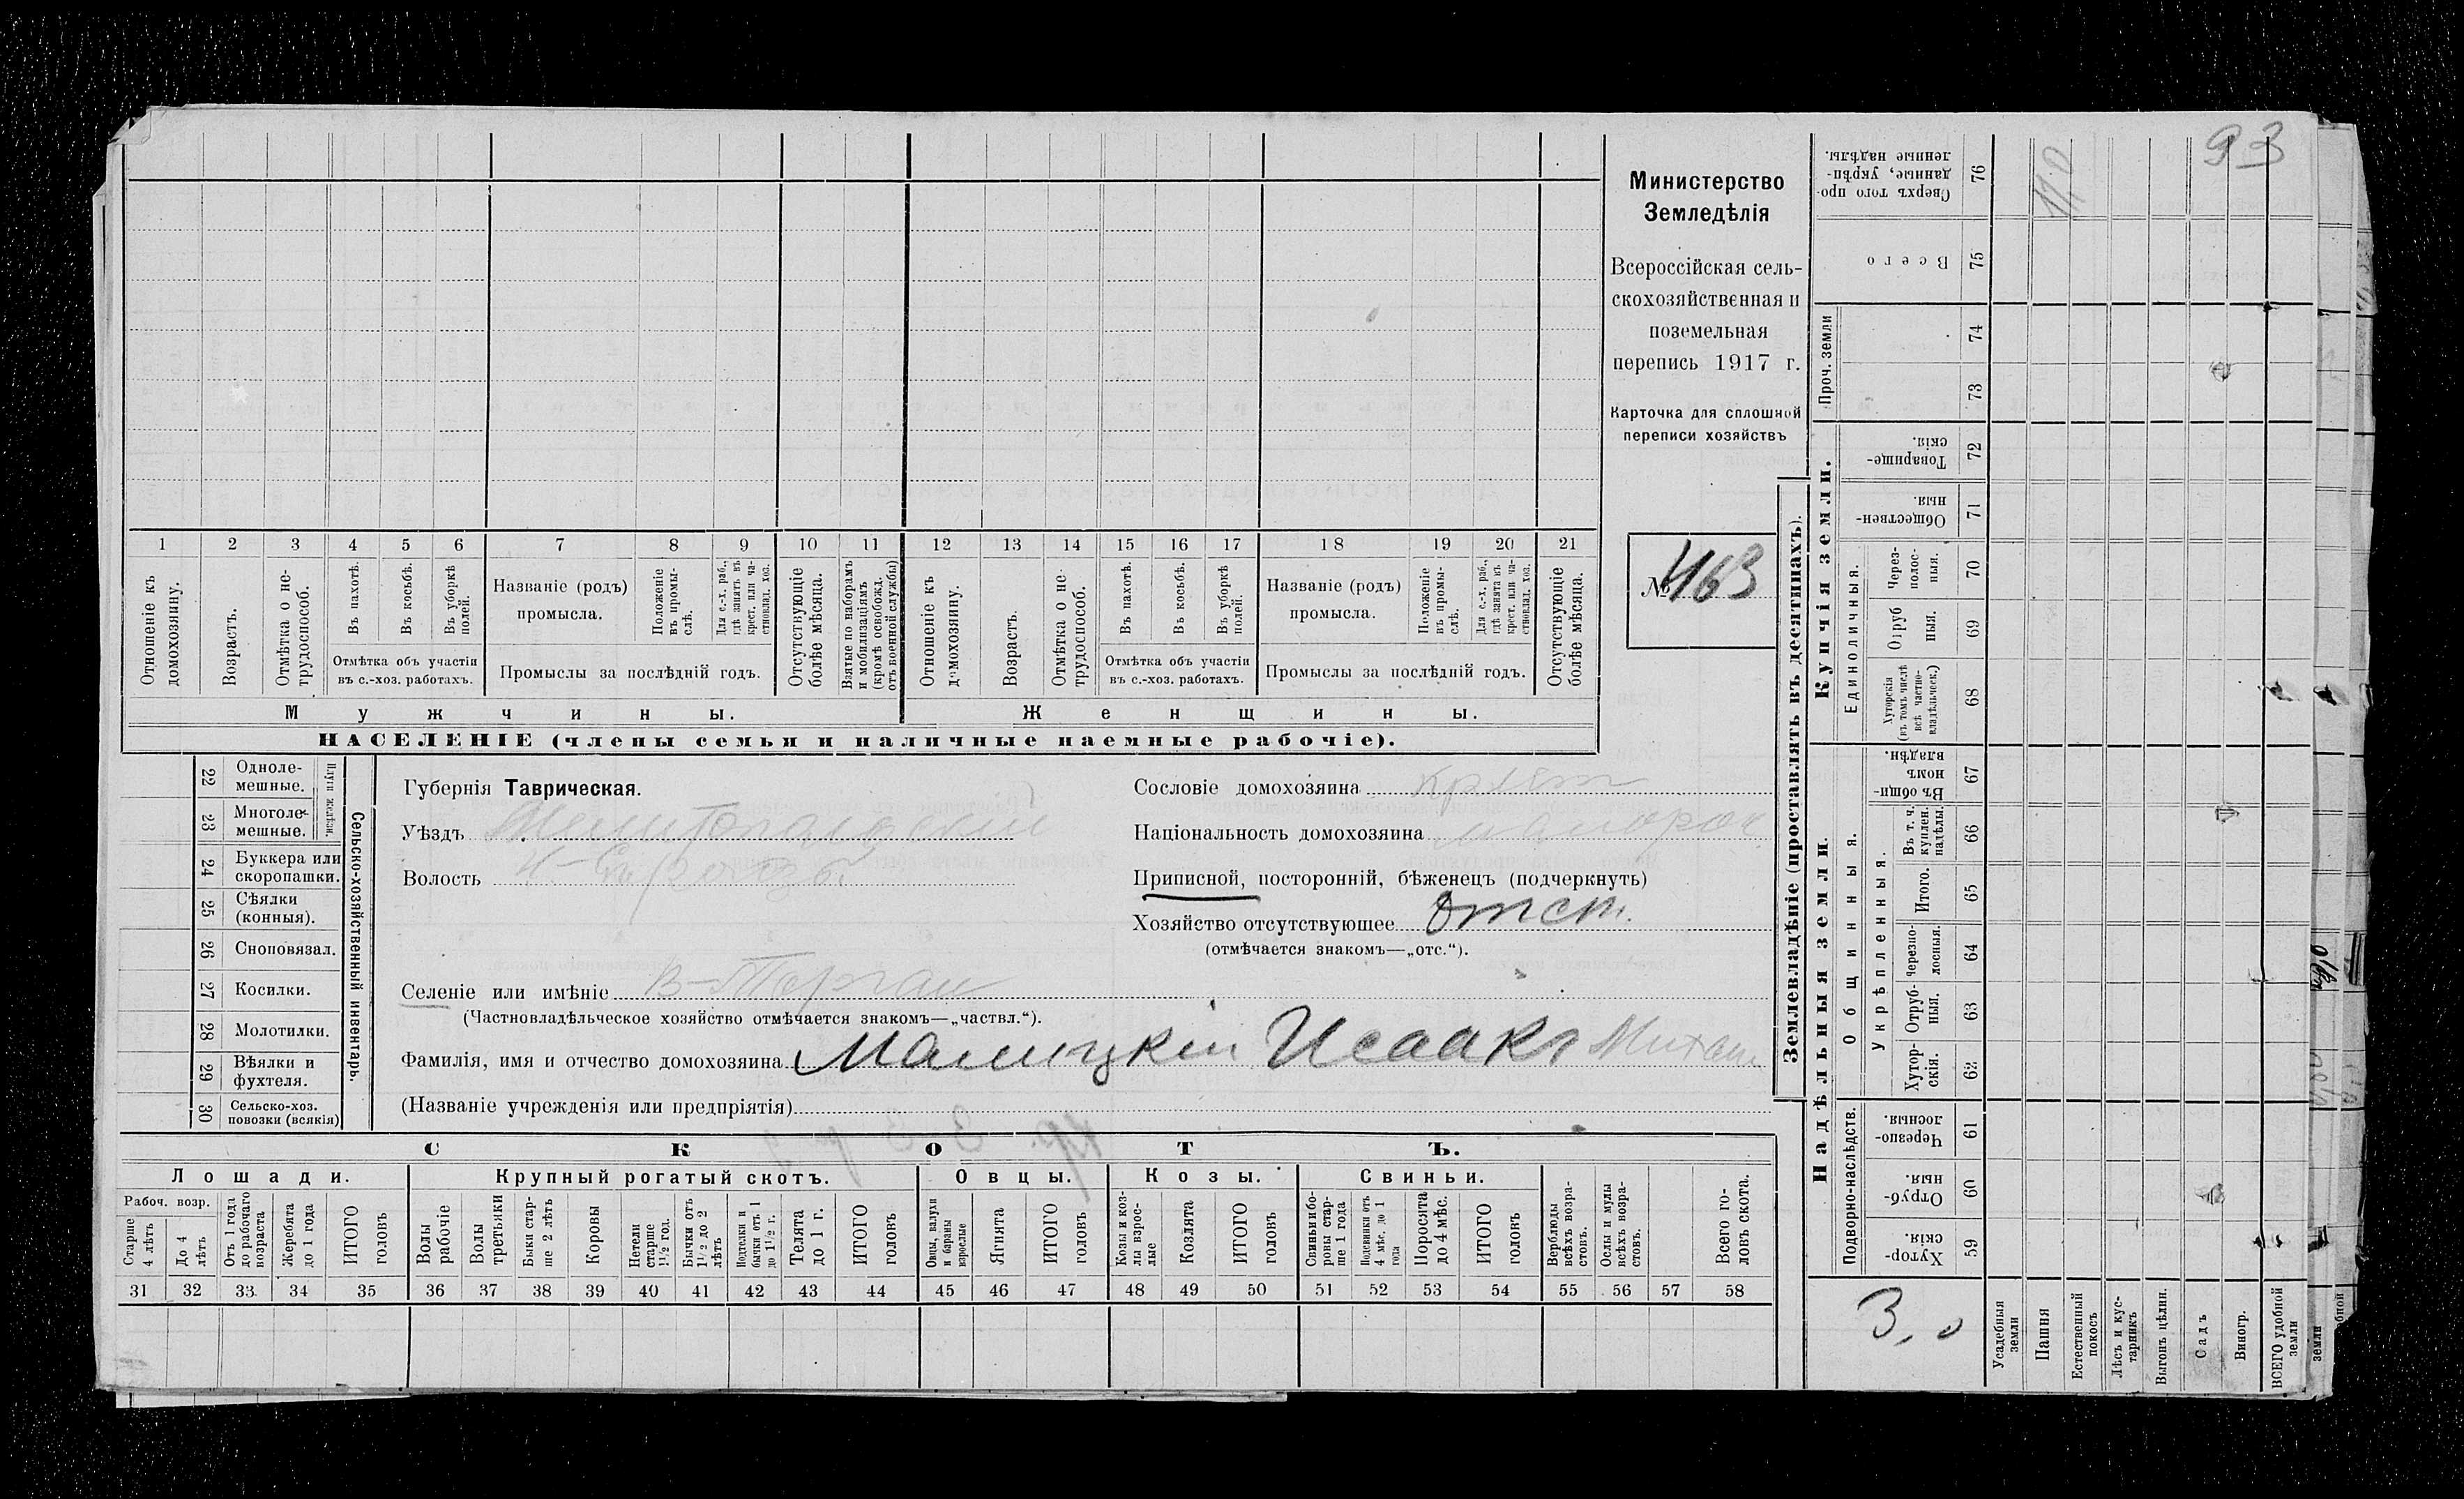 93
110
Министерство
Земледѣлія
Всероссійская сель-
скохозяйственная и
поземельная
перепись 1917 г.
Карточка для сплошной
переписи хозяйствъ
№ 463
1 2 3 4 5 6 7 8 9 10 11 12 13 14 15 16 17 18 19 20 21
Отношеніе къ домохозяину.
Возрастъ.
Отмѣтка о не-
трудоспособ.
Въ пахотѣ.
Въ косьбѣ.
Въ уборкѣ полей.
Отмѣтка объ участіи
въ с.-хоз. работахъ.
Названіе (родъ)
промысла.
Положеніе въ промы-
слѣ.
Для с.-х. раб., гдѣ занятъ въ крест. или ча-
стновлад. хоз.
Промыслы за послѣдній годъ.
Отсутствующіе болѣе мѣсяца.
Взятые по наборамъ и мобилизаціямъ (кромѣ освобожд. отъ военной службы)
Отношеніе къ домохозяину.
Возрастъ.
Отмѣтка о не-
трудоспособ.
Въ пахотѣ.
Въ косьбѣ.
Въ уборкѣ полей.
Отмѣтка объ участіи
въ с.-хоз. работахъ.
Названіе (родъ)
промысла.
Положеніе въ промы-
слѣ.
Для с.-х. раб., гдѣ занята въ крест. или ча-
стновлад. хоз.
Промыслы за послѣдній годъ.
Отсутствующіе болѣе мѣсяца.
Мужчины.
Женщины.
НАСЕЛЕНІЕ (члены семьи и наличные наемные рабочіе).
22 Одноле-
мешные.
23 Многоле-
мешные.
Плуги желѣзн.
24 Буккера или
скоропашки.
25 Сѣялки
(конныя).
26 Сноповязал.
27 Косилки.
28 Молотилки.
29 Вѣялки и
фухтеля.
30 Сельско-хоз.
повозки (всякія)
Сельско-хозяйственный инвентарь.
Губернія Таврическая.
Уѣздъ Мелитопольскій
Волость
Селеніе или имѣніе В-Торгаи
(Частновладѣльческое хозяйство отмѣчается знакомъ—„частвл.“).
Фамилія, имя и отчество домохозяина Малицкій Исаакъ
(Названіе учрежденія или предпріятія)
Сословіе домохозяина крест
Національность домохозяина малорос
Приписной, посторонній, бѣженецъ (подчеркнуть)
Хозяйство отсутствующее отст.
(отмѣчается знакомъ—„отс.“).
СКОТЪ.
Лошади.
Крупный рогатый скотъ.
Овцы.
Козы.
Свиньи.
Рабоч. возр.
Старше 4 лѣтъ
До 4 лѣтъ
Отъ 1 года до рабочаго возраста
Жеребята до 1 года
ИТОГО головъ
Волы рабочіе
Волы третьяки
Быки стар-
ше 2 лѣтъ
Коровы
Нетели старше 1½ год.
Бычки отъ 1½ до 2 лѣтъ
Подтелки и бычки отъ 1 до 1½ г.
Телята до 1 г.
ИТОГО головъ
Овцы, валухи и бараны взрослые
Ягнята
ИТОГО головъ
Козы и коз-
лы взрос-
лые
Козлята
ИТОГО головъ
Свиньи и бо-
ровы стар-
ше 1 года
Подсвинки отъ 4 мѣс. до 1 года
Поросята до 4 мѣс.
ИТОГО головъ
Верблюды всѣхъ возра-
стовъ.
Ослы и мулы всѣхъ возра-
стовъ.
Всего го-
ловъ скота.
31 32 33 34 35 36 37 38 39 40 41 42 43 44 45 46 47 48 49 50 51 52 53 54 55 56 57 58
Землевладѣніе (проставлять въ десятинахъ).
Купчія земли.
Надѣльныя земли.
Сверхъ того про-
данные, укрѣп-
ленные надѣлы. 76
Всего 75
Проч. земли
74
73
Товарище-
скія. 72
Обществен-
ныя. 71
Единоличныя.
Через-
полос-
ныя. 70
Отруб
ныя. 69
Хуторскія (въ томъ числѣ всѣ частно-
владѣльческ.) 68
Общинныя.
Въ общи-
номъ
владѣн. 67
Укрѣпленныя.
Въ т. ч. куплен. надѣлы. 66
Итого. 65
Черезпо-
лосныя. 64
Отруб-
ныя. 63
Хутор-
скія. 62
Подворно-наслѣдств.
Черезпо-
лосныя. 61
Отруб-
ныя. 60
Хутор-
скія. 59
3,0
Усадебныя земли
Пашня
Естественный покосъ
Лѣсъ и кус-
тарникъ
Выгонъ цѣлин.
Садъ
Виногр.
ВСЕГО удобной земли
земли